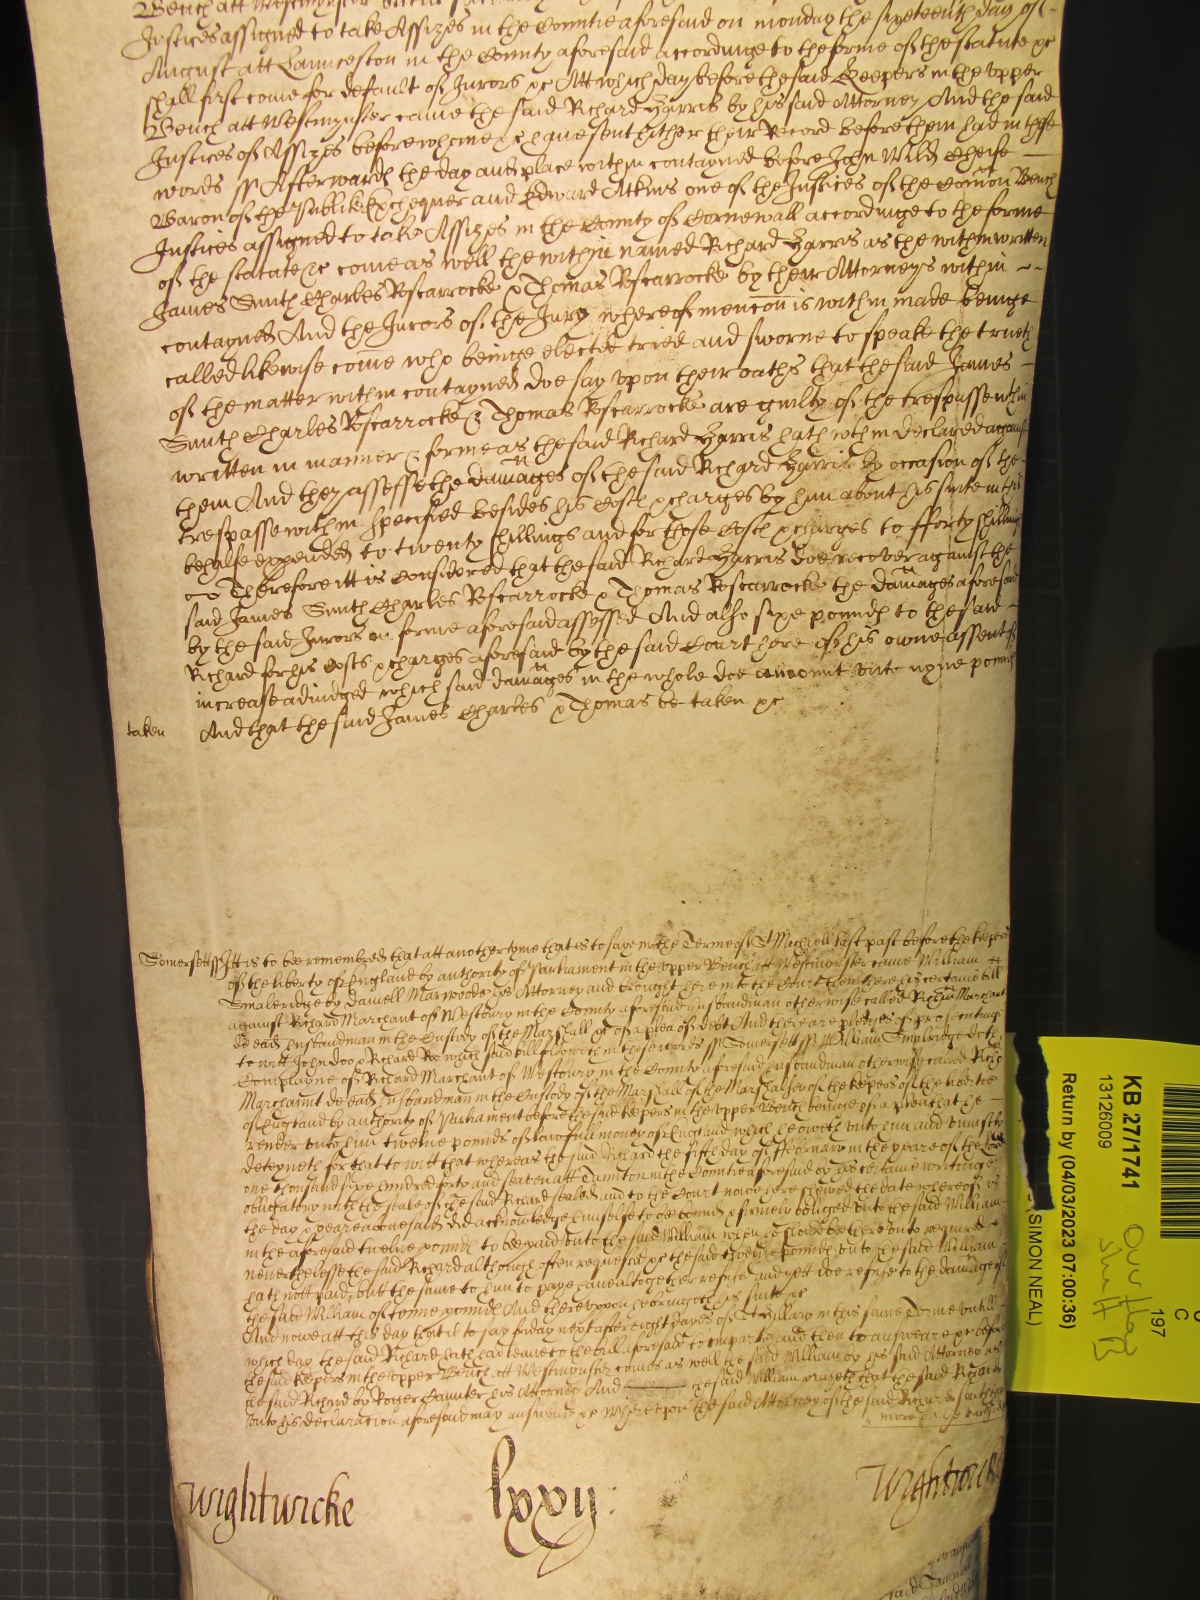 Bench att Westminster
Justices assigned to take Assizes in the Countie aforesaid on monday the sixteenth day of
August att Launceston in the County aforesaid accordinge to the forme of the statute &c
shall first come for default of Jurors &c Att which day before the said Keepers in the upper
Bench att Westmynster came the said Richard Harris by his said Attorney And the said
Justices of Assizes before whome &c have sent hither their Record before them had in these
words ss Afterwards the day and place within contayned before John Wild Cheife
Baron of the Publike Exchequer and Edward Atkins one of the Justices of the Comon Bench
Justices assigned to take Assizes in the County of Cornewall accordinge to the forme
of the statute &c come as well the within named Richard Harris as the within written
James Smith Charles Roscarrocke & Thomas Roscarrocke by their Attorneys within
contayned And the Jurors of the Jury whereof mencon is within made beinge
called likewise come who beinge elected tried and sworne to speake the trueth
of the matter within contayned doe say upon their oaths that the said James
Smith Charles Roscarrocke & Thomas Roscarrocke are guilty of the trespasse within
written in manner & forme as the said Richard Harris hath within declared against
them And they assesse the damages of the said Richard Harris by occasion of the
trespasse within specified besides his Costs & charges by him about his suite in this
behalfe expended to twenty shillings and for those Costs & charges to fforty shillings
Therefore itt is Considered that the said Richard Harris doe recover against the
said James Smith Charles Roscarrocke & Thomas Roscarrocke the damages aforesaid
by the said Jurors in forme aforesaid assessed And also sixe pounds to the said
Richard for his Costs & charges aforesaid by the said Court here of his owne assent of
increase adiudged which said damages in the whole doe amount unto nyne pounds
taken And that the said James Charles & Thomas be taken &c
Somersett ss Itt is to be remembred that att another tyme that is to saye in the Terme of St Michaell last past before the keepers
of the liberty of England by authority of Parliament in the upper Bench att Westminster came William
Smaleridge by Daniell Marwood his Attorney and brought here into the Court then there his certaine bill
against Richard Marchant of Westbury in the County aforesaid husbandman otherwise called Richard Marchant
de eadem husbandman in the Custody of the Marshall &c of a plea of debt And there are pledges of prosecuting
to witt John Doo & Richard Roo which said bill followeth in these words ss Somersett ss William Smalridge doth
Complayne of Richard Marchant of Westbury in the County aforesaid husbandman otherwise called Richard
Marchannt de eadem husbandman in the Custody of the Marshall of the Marshalsey of the keepers of the libertie
of England by authority of Parliament before the said keepers in the upper Bench beinge of a plea that he
render unto him twelve pounds of lawfull money of England which he oweth unto him and uniustly
deteyneth for that to witt that whereas the said Richard the fifth day of ffebruary in the yeare of the Lord
one thousand sixe hundred forty and seaven att Taunton in the Countie aforesaid by his certaine writinge
obligatory with the seale of the said Richard sealed and to the Court nowe here shewed the date whereof is
the day & yeare abovesaid did acknowledge himselfe to be bound & firmely obliged unto the said William
in the aforesaid twelve pounds to be paid unto the said William when he should be thereunto required
neverthelesse the said Richard although often requested &c the said twelve pounds unto the said William
hath nott paid, butt the same to him to paye have altogether refused and yett doe refuse to the damage of
the said William of tenne pounds And thereuppon he bringeth his suite &c
And nowe att this day that is to say friday next after eight dayes of St Hillary in this same Terme untill
which day the said Richard hath had leave to the bill aforesaid to imparle and then to answeare &c before
the said keepers in the upper Bench att Westminster comes as well the said William by his said Attorney as
the said Richard by Roger Hunter his Attorney And the said William prayeth that the said Richard
unto his declaracion aforesaid may answeare &c Whereupon the said Attorney of the said Richard saith that
Wightwicke lxxij: Wightwicke
KB 27/1741
13126009
Return by (04/03/2023 07:00:36)
SIMON NEAL)
C
197